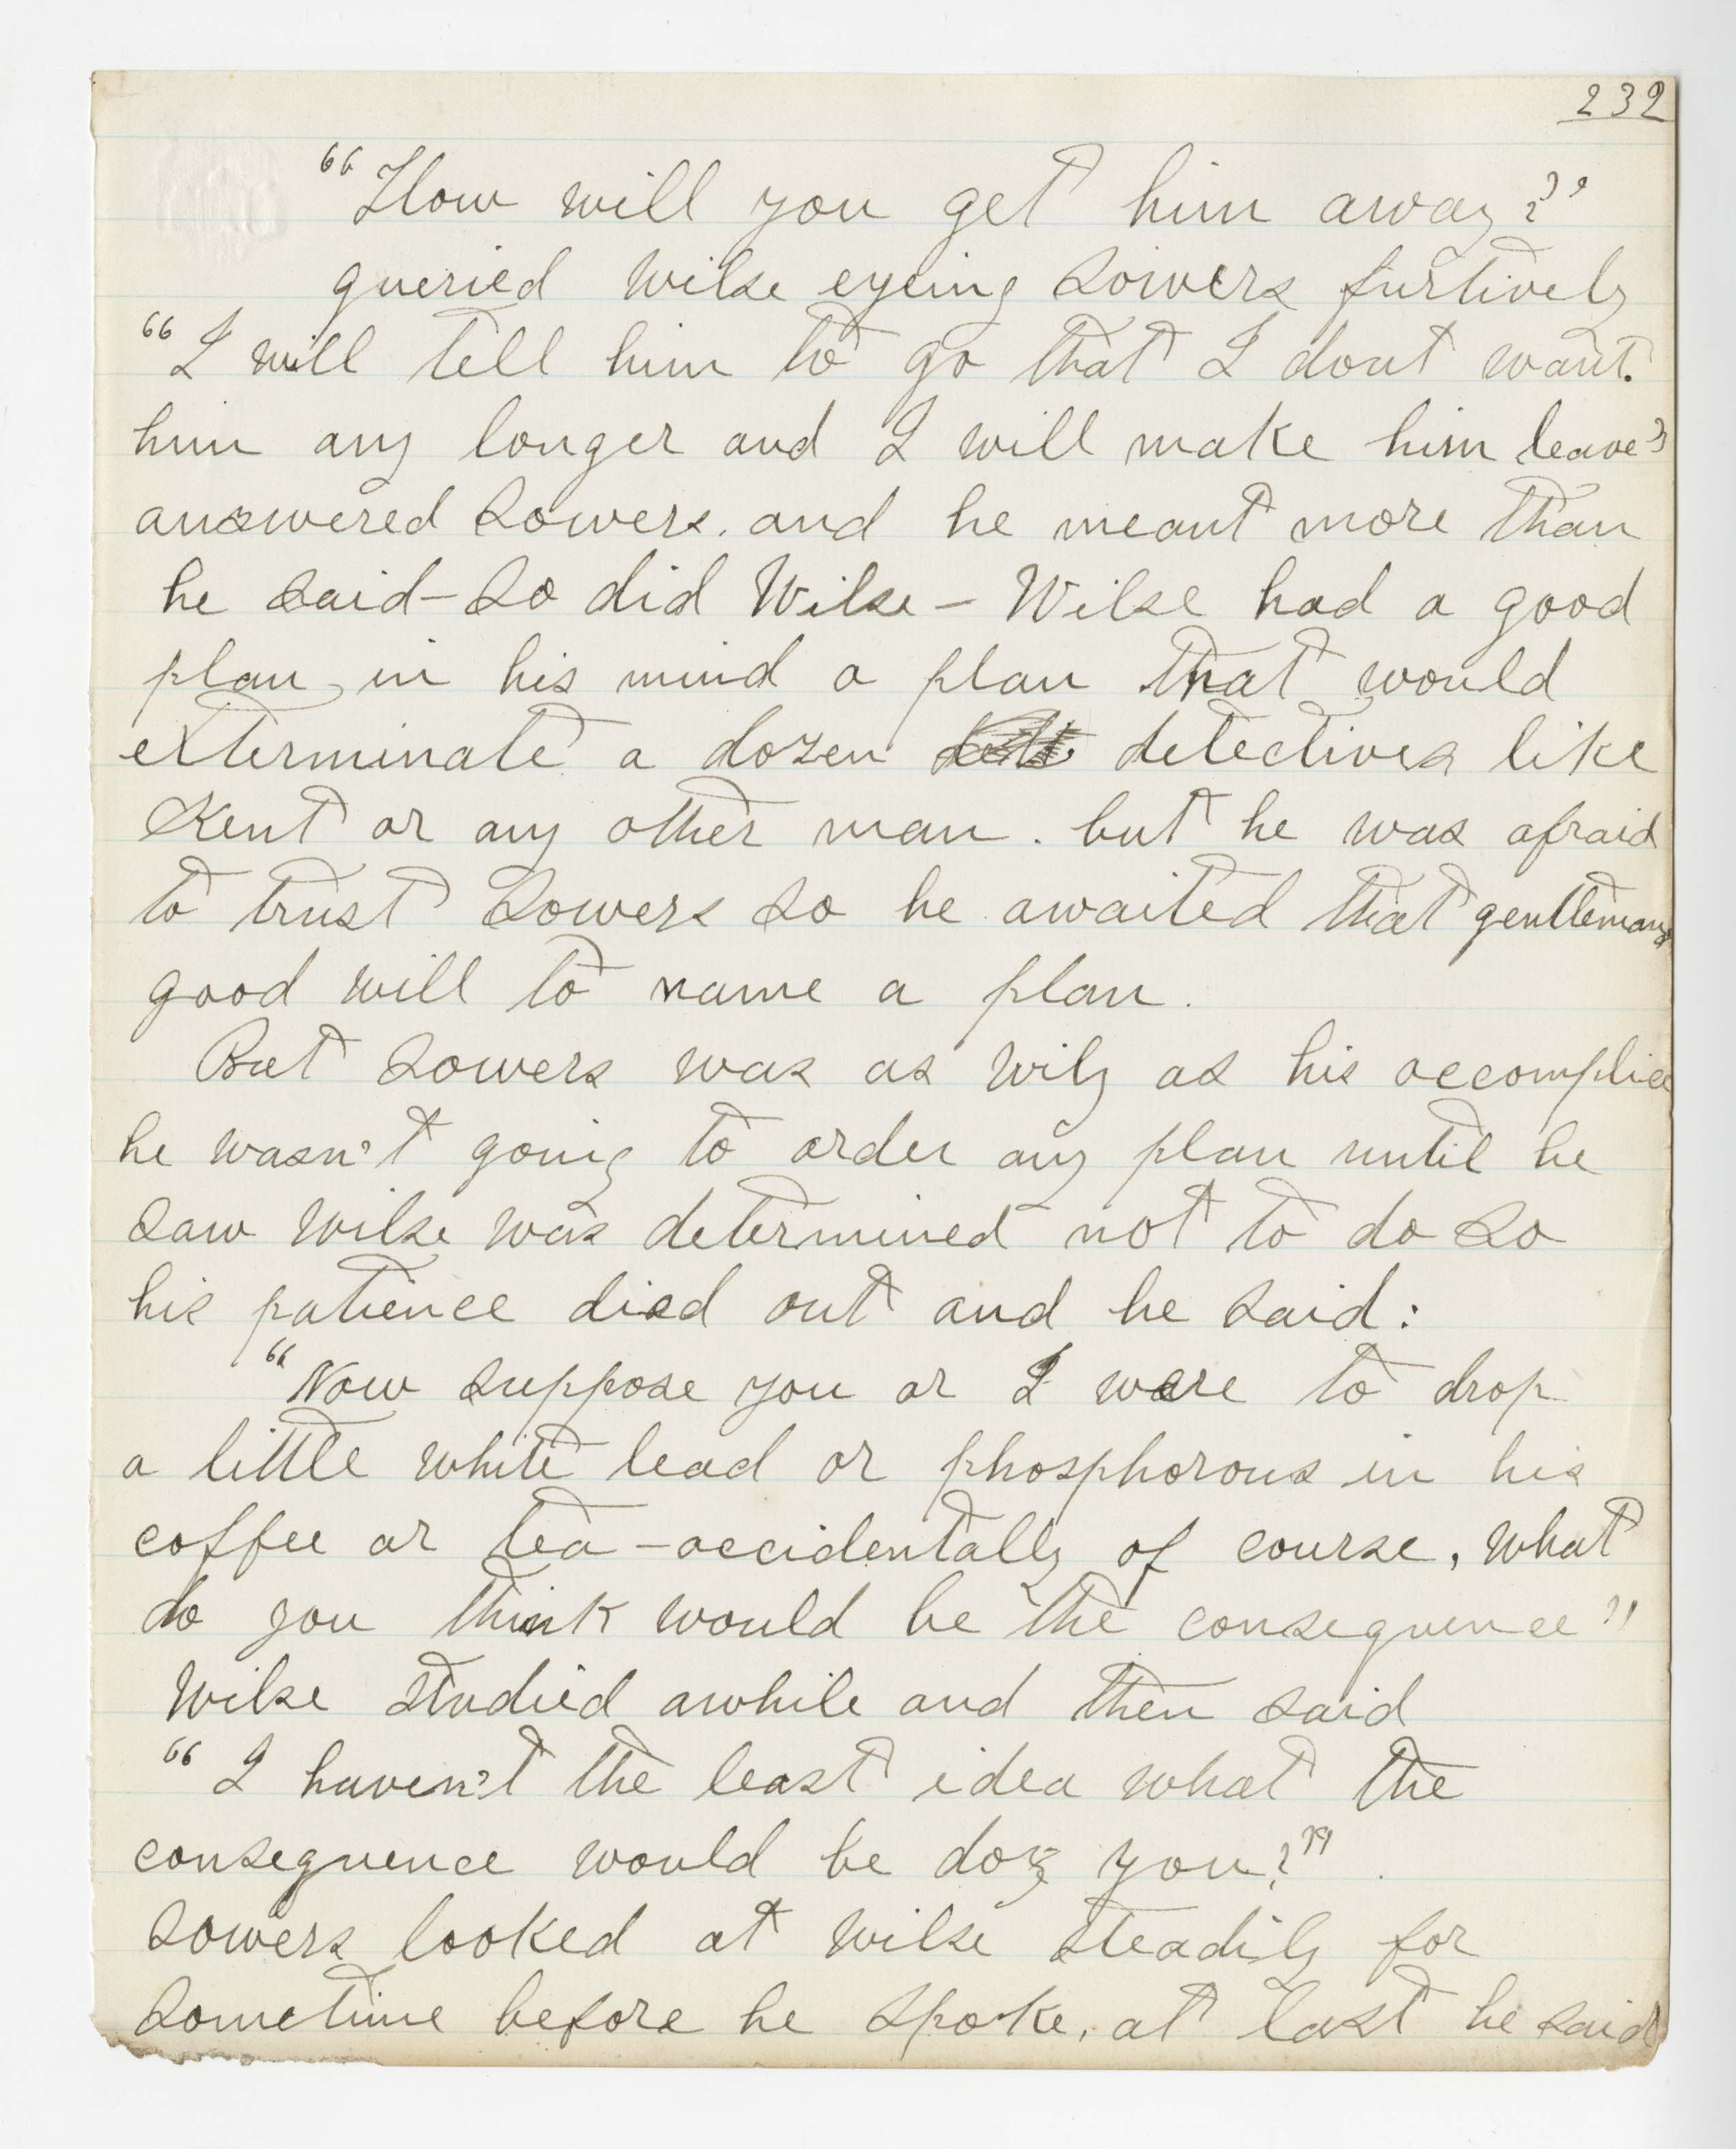 232
"How will you get him away?"
queried Wilse eyeing Sowers furtively
"I will tell him to go that I dont want.
him any longer and I will make him leave"
answered Sowers. and he meant more than
he said - So did Wilse - Wilse had a good
plan in his mind a plan that would
exterminate a dozen detectives like
Kent or any other man. but he was afraid
to trust Sowers so he awaited that gentlemans
good will to name a plan.
But Sowers was as wily as his accomplice
he wasn't going to order any plan until he
saw Wilse was determined not to do so
his patience died out and he said:
"Now suppose you or I were to drop
a little white lead or phosphorous in his
coffee or tea - accidentally of course, what
do you think would be the consequence"
Wilse studied awhile and then said
"I haven't the least idea what the
consequence would be do you?"
Sowers looked at Wilse steadily for
sometime before he spoke, at last he said